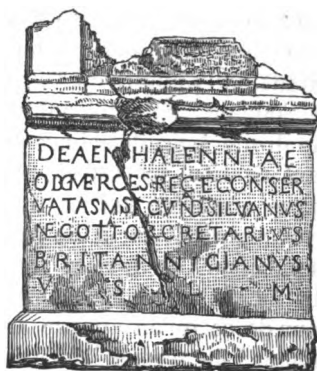 DEAENHALENNIAE
OBMERCESRECTECONSER
VATASMSECVNDSILVANVS
NEGOTTORCRETARIVS
BRITANNICIANVS
V S L M